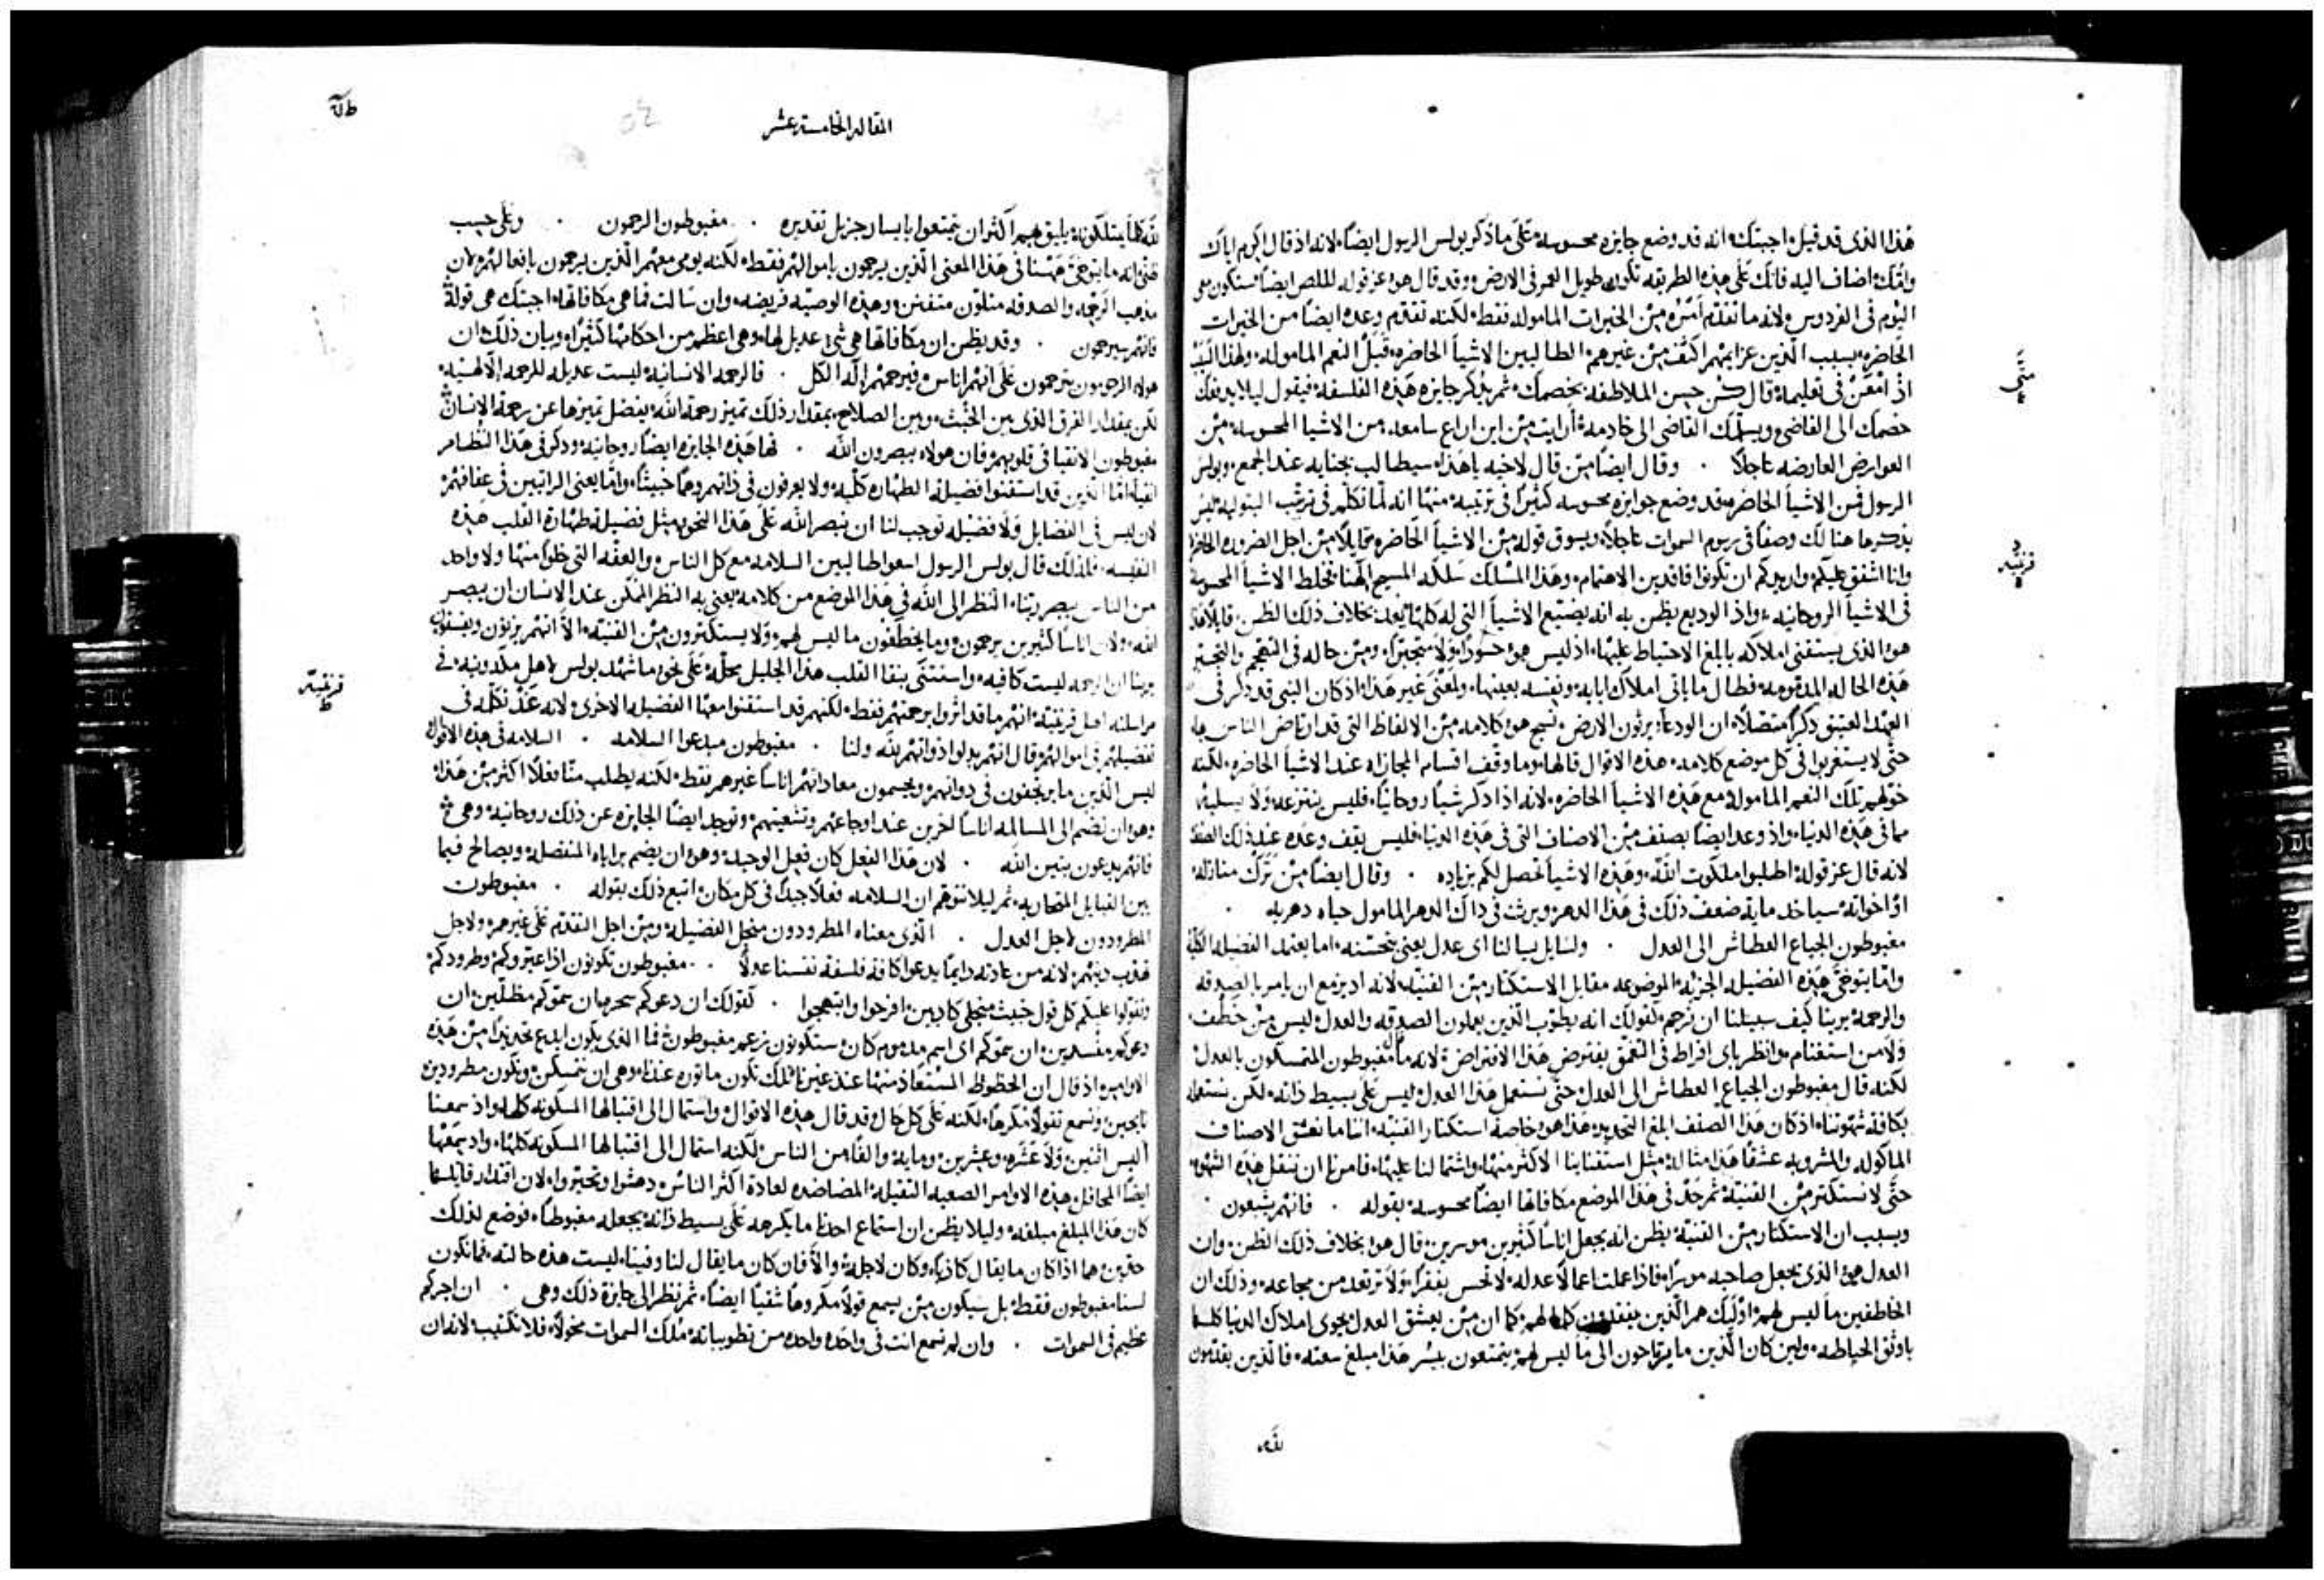 هذا الذى قد قيل، اجبتك، انه قد وضع جايزه محسوسه، على ما ذكر بولس الرسول ايضاً، لانه اذ قال اكرم اباك
وامّك، اضاف اليه فانك على هذه الطريقه تكون طويل العمر فى الارض، وقد قال هو عز قوله للص ايضاً ستكون معى
اليوم فى الفردوس، لانه ما تقدّم من الخيرات الماموله فقط، لكنه تقدّم وعده ايضاً من الخيرات
الحاضره، بسبب الذين عزايمهم اكثف من غيرهم، الطالبين الاشيا الحاضره، قبل النعم الماموله، ولهذا السبب
اذ امعن فى تعليمه، قال كن حسن الملاطفه بخصمك، ثم يذكر جايزه هذه الفلسفه، فيقول ليلا يدفعك
خصمك الى القاضى، ويسلمك القاضى الى خادمه، أرايت من اين اراع سامعه، من الاشيا المحسوسه، من
العوارض العارضه عاجلاً . وقال ايضاً من قال لاخيه ياهذا، سيطالب بجنايه عند الجمع، وبولس
الرسول فمن الاشيا الحاضره، قد وضع جوايزه محسوسه كثيراً فى ترتيبه، منها انه لما تكلم فى ترتيب البتوليه، ليس
يذكرها هنالك وصفاً فى يريوم السموات عاجلاً، ويسوق قوله من الاشيا الحاضره قايلاً من اجل الضروره الحاضره
وانا اشفق عليكم، واريدكم ان تكونوا فاقدين الاهتمام، وهذا المسلك سلكه المسيح الهنا، فخلط الاشيا المحسوسه
فى الاشيا الروحانيه، واذ الوديع يظن به انه يضيّع الاشيا التى له كلها، يعد بخلاف ذلك الظن، قايلاً هذا
هو الذى يستقنى املاكه بابلغ الاحتياط عليها، اذ ليس هو جسوراً ولا متجبراً، ومن حاله فى التهجم والتجبر
هذه الحاله المذمومه، فطال ما باتى املاك ابايه ونفسه بعينها، ولمعنى غير هذا، اذ كان النبى قد ذكر فى
العهد العتيق ذكراً متصلاً، ان الودعا يرثون الارض، نسج هو كلامه من الالفاظ التى قد ارتاض الناس بها
حتى لا يستغربوا فى كل موضع كلامه، هذه الاقوال قالها، وما وقف اقسام المجازاه عند الاشيا الحاضره، لكنه
خولهم تلك النعم الماموله مع هذه الاشيا الحاضره، لانه اذا ذكر شياً روحانياً، فليس ينتزعه ولا يسلبه
مما فى هذه الدنيا، واذ وعد ايضاً بصنف من الاصناف التى فى هذه الدنيا، فليس يقف وعده عند ذلك الصنف
لانه قال عز قوله، اطلبوا ملكوت الله، وهذه الاشيا تحصل لكم بزياده . وقال ايضاً من ترك منازله،
او اخواته، سياخذ مايه ضعف ذلك فى هذا الدهر، ويرث فى ذاك الدهر المامول حياه دهريه .
مغبوطون الجياع العطاش الى العدل . ولسايل يسالنا اى عدل يعنى بتحسّنه، اما يعتمد الفضيله الكليه
واما يتوخى هذه الفضيله الجزئيه الموضوعه مقابل الاستكثار من القنيه، لانه اذ يزمع ان يامر بالصدقه
والرحمه، يرينا كيف سبيلنا ان نرحم، كقولك انه يطوّب الذين يعملون الصدقه والعدل، ليس من خطف،
ولا من استغنام، وانظر باى افراط فى التعمّق يفترض هذا الافتراض، لانه ما قال مغبوطون المتمسكون بالعدل
لكنه قال مغبوطون الجياع العطاش الى العدل، حتى نستعمل هذا العدل، ليس على بسيط ذاته، لكن نستعمله
بكافه شهوتنا، اذ كان هذا الصنف ابلغ التحديد، هذا هو خاصه استكثار القنيه، اننا ما نعشق الاصناف
الماكوله والمشروبه عشقاً هذا مثاله، مثل استقناينا الاكثر منها، واشتمالنا عليها، فامرنا ان ننقل هذه الشهوه،
حتى لا نستكثر من القنيه، ثم حدّ فى هذا الموضع مكافاتها ايضاً محسوسه، بقوله . فانهم يشبعون .
وبسبب ان الاستكثار من القنيه يظن انه يجعل اناساً كثيرين موسرين، قال هو بخلاف ذلك الظن، وان
العدل هو الذى يجعل صاحبه موسراً، فاذا عملت اعمالاً عدله، لا تحس بفقر، ولا ترتعد من مجاعه، وذلك ان
الخاطفين ما ليس لهم، اوليك هم الذين يفقدون كلما لهم، كما ان من يعشق العدل يحوى املاك الدنيا كلها
باوثق الحياطه، ولين كان الذين ما يرتاحون الى ما ليس لهم، يتمتعون بيسر هذا مبلغ سعته، فالذين يقدمون
لله
متى
قرنتيه
المقاله الخامسه عشر
لله كلما يمتلكونه، يليق بهم اكثر ان يتمتعوا بايسار جزيل تقديره . مغبوطون الرحمون . وعلى حسب
ظنى انه ما يتوخى ههنا فى هذا المعنى الذين يرحمون باموالهم فقط، لكنه يومى معهم الى الذين يرحمون بافعالهم، لان
مذهب الرحمه والصدقه متلوّن متفنن، وهذه الوصيّه فريضه، وان سالت فما هى مكافاتها، اجبتك هى قوله
فانهم سيرحمون . وقد يظن ان مكافاتها هى شى عديل لها، وهى اعظم من احكامها كثيراً، وبيان ذلك، ان
هولاء الرحومون يترحمون على انهم اناس، فيرحمهم اله الكل . فالرحمه الانسانيه ليست عديله للرحمه الالهيه،
لكن بمقدار الفرق الذى بين الخبث، وبين الصلاح، بمقدار ذلك تميز رحمة الله، يفضل تميزها عن رحمة الانسان
مغبوطون الانقيا فى قلوبهم، فان هولاء يبصرون الله . فها هذه الجايزه ايضاً روحانيه، وذكر فى هذا النظام
انقياء، اما الذين قد استقنوا فضيله الطهاره كلّيه، ولا يعرفون فى ذاتهم وهماً خبيثاً، واما يعنى الراتبين فى عفافهم
لان ليس فى الفضايل ولا فضيله توجب لنا ان نبصر الله على هذا النحو، مثل فضيله طهارة القلب هذه
النفيسه، فلذلك قال بولس الرسول اسعوا طالبين السلامه مع كل الناس، والعفه التى خلواً منها ولا واحد
من الناس يبصر ربنا، النظر الى الله فى هذا الموضع من كلامه، يعنى به النظر الممكن عند الانسان ان يبصر
الله، ولان اناساً كثيرين يرحمون، وما يخطفون ما ليس لهم، ولا يستكثرون من القنيّه، الا انهم يزنون ويفسقون
يرينا ان الرحمه ليست كافيه، واستثنى بنقا القلب هذا الجليل محلّه، على نحو ما شهد بولس لاهل مكدونيه، فى
مراسلته اهل قرنتيه، انهم ما قد اثروا برحمتهم فقط، لكنهم قد استقنوا معها الفضيله الاخرى، لانه عند تكلّمه فى
تفضيلهم فى اموالهم، قال انهم بذلوا ذواتهم لله ولنا . مغبوطون مبدعوا السلامه . السلامه فى هذه الاقوال
ليس الذين ما يرتجفون فى ذواتهم، ويحسمون معاداتهم اناساً غيرهم فقط، لكنه يطلب منّا فعلاً اكثر من هذا،
وهو ان نضم الى المسالمه اناساً اخرين عند اوجاعهم وتشعيثهم، وتوجد ايضاً الجايزه عن ذلك روحانيه، وهى
فانهم يدعون بنين الله . لان هذا الفعل كان فعل الوحيد، وهو ان يضم براياه المنفصله، ويصالح فيما
بين القبايل المتحاربه، ثم ليلا نتوهّم ان السلامه فعلاً جيداً فى كل مكان، اتبع ذلك بقوله . مغبوطون
المطرودون لاجل العدل . الذى معناه المطرودون من اجل الفضيله، ومن اجل التقدّم على غيرهم، ولاجل
تهذب دينهم، لانه من عادته دايماً يدعوا كافه فلسفة نفسنا عدلاً . مغبوطون تكونون اذا عيّروكم وطردوكم
وتقوّلوا عليكم كل قول خبيث من اجلى كاذبين، افرحوا وابتهجوا . كقولك ان دعوكم سحره، ان سمّوكم مظلّين، ان
دعوكم مفسدين، ان سمّوكم اى اسم مذموم كان، ستكونون بزعمهم مغبوطون، فما الذى يكون ابدع تحديداً من هذه
الاوامر، اذ قال ان الحظوظ المستعاذ منها عند غيرنا، تلك تكون ماثوره عندنا، وهى ان نتمسكن، ونكون مطرودين
نايحين، ونسمع تقولاً مكروهاً، لكنه على كل حال، قد قال هذه الاقوال، واستمال الى اقتبالها المسكونه كلها، واذ سمعنا
أليس اثنين، ولا عشره، وعشرين، ومايه، والفاً من الناس، لكنه استمال الى اقتبالها المسكونه كلها، واذ سمعتها
ايضاً المحافل، هذه الاوامر الصعبه الثقيله، المضادده لعادة اكثر الناس، دهشوا وتحيّروا، لان اقتدار قايلها
كان هذا المبلغ مبلغه، وليلا يظن ان استماع احدنا ما يكرهه على بسيط ذاته، يجعله مغبوطاً، فوضع لذلك
حدّين، هما اذا كان ما يقال كاذباً، وكان لاجله، والا فان كان ما يقال لنا وفينا، ليست هذه حالته، فما نكون
لسنا مغبوطون فقط، بل سيكون من يسمع قولاً مكروهاً شقياً ايضاً، ثم نظر الى جايزة ذلك وهى . ان اجركم
عظيم فى السموات . وان لم تسمع انت فى واحده واحده من تطويباته، ملك السموات مخولاً، فلا تكتيب، لانه ان
قرنتيه